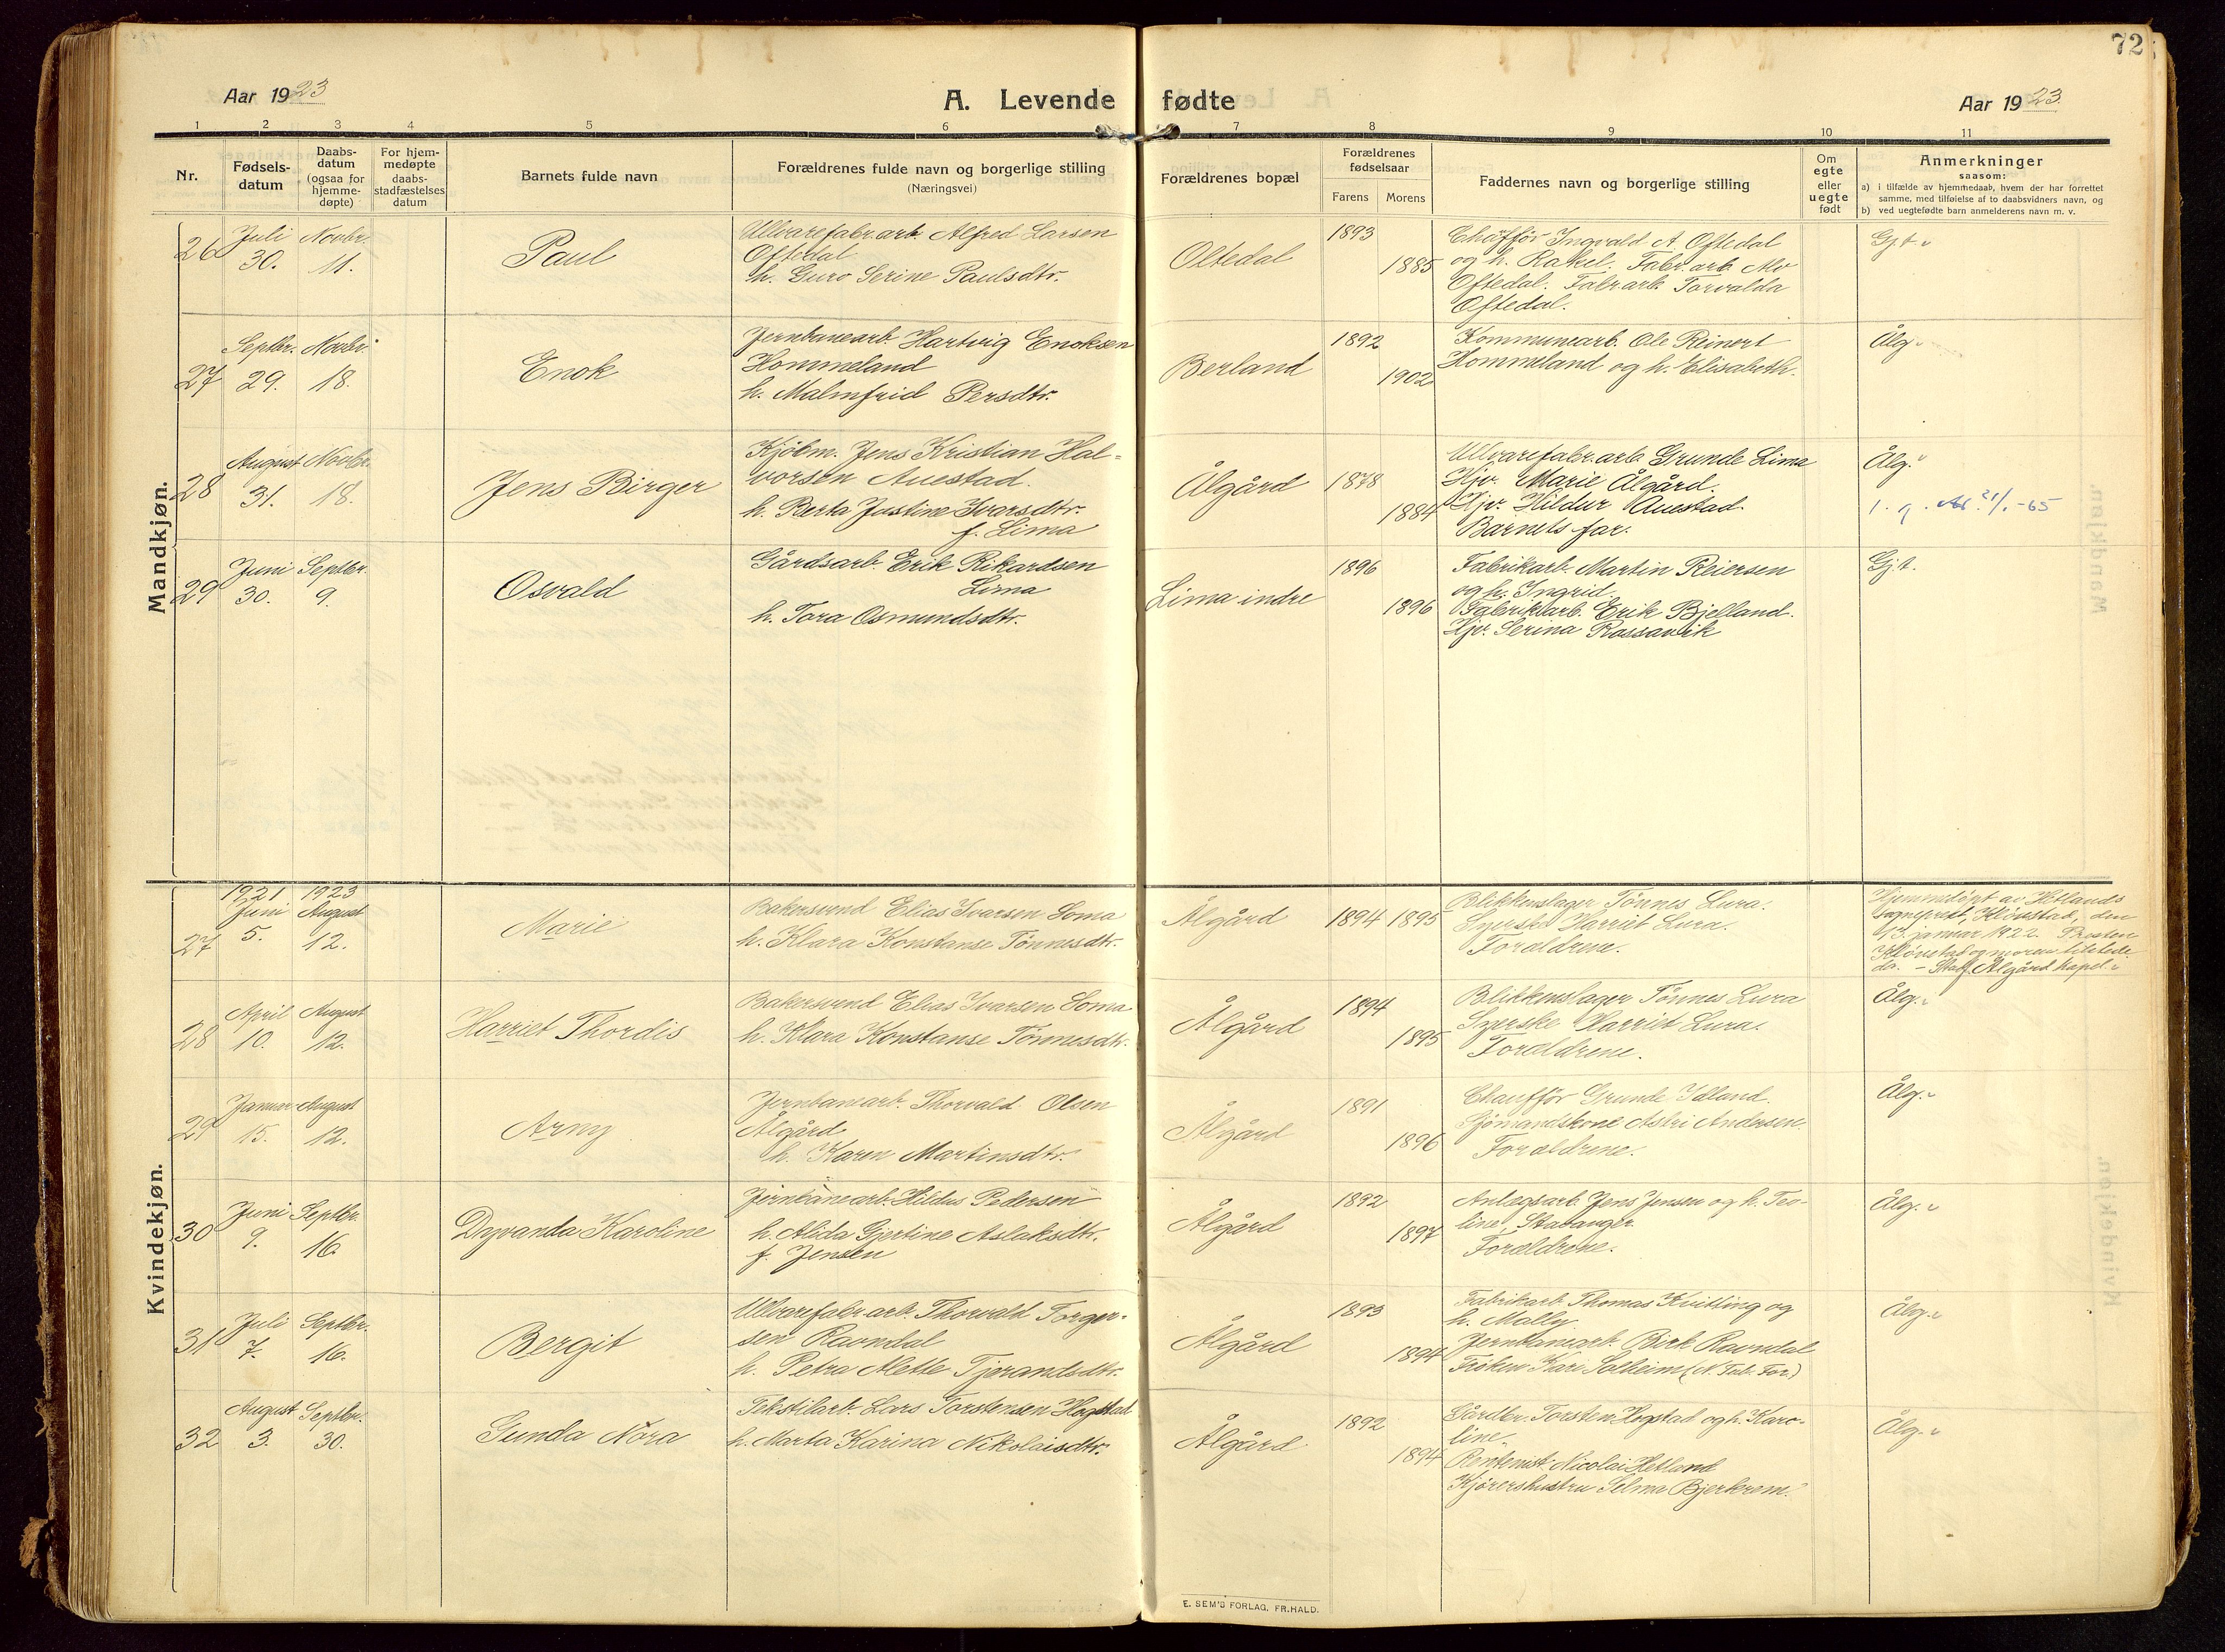 72
Aar 1923
A. Levende fødte
Aar 1923.
1 2 3 4 5 6 7 8 9 10 11
Nr.
Fødsels-
datum
Daabs-
datum
(ogsaa for
hjemme-
døpte)
For hjem-
medøpte
daabs-
stadfæstelses
datum
Barnets fulde navn
Forældrenes fulde navn og borgerlige stilling
(Næringsvei)
Forældrenes bopæl
Forældrenes
fødselsaar
Farens Morens
Faddernes navn og borgerlige stilling
Om
egte
eller
uegte
født
Anmerkninger
saasom:
a) i tilfælde av hjemmedaab, hvem der har forrettet
samme, med tilføielse af to daabsvidners navn, og
b) ved uegtefødte barn anmelderens navn m. v.
Mandkjøn.
26
Juli
30.
Novbr.
11.
Paul
Ullvarefabr.arb. Alfred Larsen
Oftedal
h. Guro Serine Paulsdtr.
Oltedal
1893
1885
Chaffför Ingvald A. Oftedal
og h. Rakel. Fabr.arb. Alv
Oftedal. Fabr.arb. Torvalda
Oftedal.
Gj.t.
27
Septbr.
29.
Novbr.
18.
Enok
Jernbanearb. Hartvig Enoksen
Hommeland
h. Malmfrid Persdtr.
Berland
1892
1902
Kommunearb. Ole Reinert
Hommeland og h. Elisabeth.
Ålg.
28
August
31.
Novbr.
18.
Jens Birger
Kjöbm. Jens Kristian Hal-
vorsen Auestad.
h. Berta Justine Ivarsdtr.
f. Lima
Ålgård
1878
1884
Ullvarefabr.arb. Grunde Lima
Hjv. Marie Ålgård.
Hjv. Hildur Auestad.
Barnets far.
Ålg.
29
Juni
30.
Septbr.
9.
Osvald
Gårdsarb. Erik Rikardsen
Lima
h. Tora Osmundsdtr.
Lima indre
1896
1896
Fabrikarb. Martin Reiersen
og h. Ingrid.
Fabrikarb. Erik Bjelland.
Hjv. Serina Rossavik
Gj.t.
Kvindekjøn.
27
1921
Juni
5.
1923
August
12.
Marie
Bakersvend Elias Ivarsen Soma
h. Klara Konstanse Tönnesdtr.
Ålgård
1894 1895
Blikkenslager Tönnes Lura.
Syerske Harriet Lura.
Forældrene.
Hjemmedöpt av Hetlands
sogneprest, Klövstad, den
13. januar 1922. Presten
Klövstad og moren tilstede
der. - Stadf. Ålgård kapel.
28
April
10.
August
12.
Harriet Thordis
Bakersvend Elias Ivarsen Soma
h. Klara Konstanse Tönnesdtr.
Ålgård
1894
1895
Blikkenslager Tönnes Lura
Syerske Harriet Lura.
Forældrene.
Ålg.
29
Januar
15.
August
12.
Arny
Jernbanearb. Thorvald Olsen
Ålgård
h. Karen Martinsdtr.
Ålgård
1891
1896
Chauffför Grunde Idland.
Sjömandskone Astri Andersen.
Forældrene.
Ålg.
30
Juni
9.
Septbr.
16.
Dyvanda Karoline
Jernbanearb. Hildus Pedersen
h. Alida Gjertine Aslaksdtr.
f. Jensen
Ålgård
1892
1897
Anlegsarb. Jens Jensen og h. Teo-
line, Stavanger.
Forældrene.
Ålg.
31
Juli
7.
Septbr.
16.
Bergit
Ullvarefabr.arb. Thorvald Torger-
sen Ravndal
h. Petra Mette Tjerandsdtr.
Ålgård
1893
1894
Fabrikarb. Thomas Kvitting og
h. Mally.
Jernbanearb. Birk Ravndal
Fröken Kari Solheim
Ålg.
32
August
3.
Septbr.
30.
Gunda Nora
Tekstilarb. Lars Torstensen Hogstad
h. Marta Karina Nikolaisdtr.
Ålgård
1892
1894
Gårdbr. Torsten Hogstad og h. Karo-
line.
Rentenist Nicolai Hetland
Kjörershustru Selma Bjerkrem.
Ålg.
E. SEM'S FORLAG, FR.HALD.